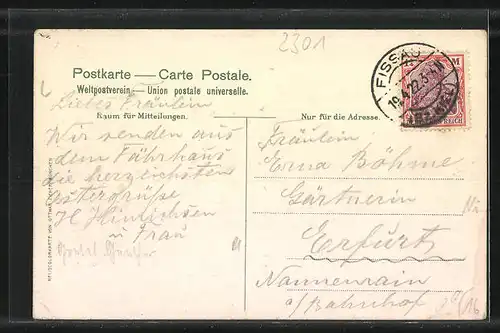 2301
Postkarte — Carte Postale.
Weltpostverein — Union postale universelle.
Raum für Mitteilungen.
Nur für die Adresse.
FISSAU
19.4.22.
M
REICH
Liebes Fräulein
Wir senden aus
dem Fährhaus
die herzeichsten
Ostergrüße
H Hinrichsen
u Frau
Fräulein
Erna Böhme
Gärtnerin
Erfurt
Nonnenrain
a/Bahnhof